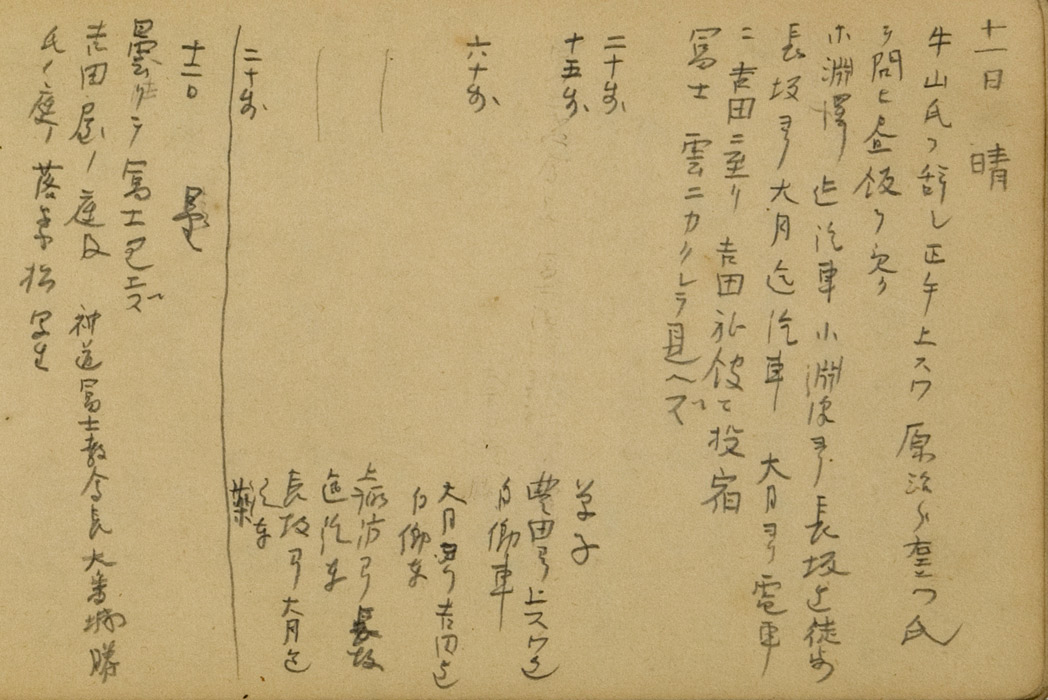 十一日 晴
牛山氏ヲ辞シ正午上スワ 原治 氏
ヲ問ヒ昼飯ヲ
小淵 迄汽車 小淵 ヨリ長坂迄徒歩
長坂ヨリ大月迄汽車 大月ヨリ電車
ニ吉田ニ至リ 吉田 館ニ投宿
冨士 雲ニカクレテ見ヘズ
二十戋 菓子
十五戋 豊田ヨリ上スワ迄
自働車
六十戋 大月ヨリ吉田迄
自働車
上諏訪ヨリ長坂
迄汽車
長坂ヨリ大月迄
汽車
二十戋 薬
十二日 曇
曇リテ冨士見エズ
吉田屋ノ庭及 神道冨士教会長大番城勝
氏ノ庭ノ落葉松写生